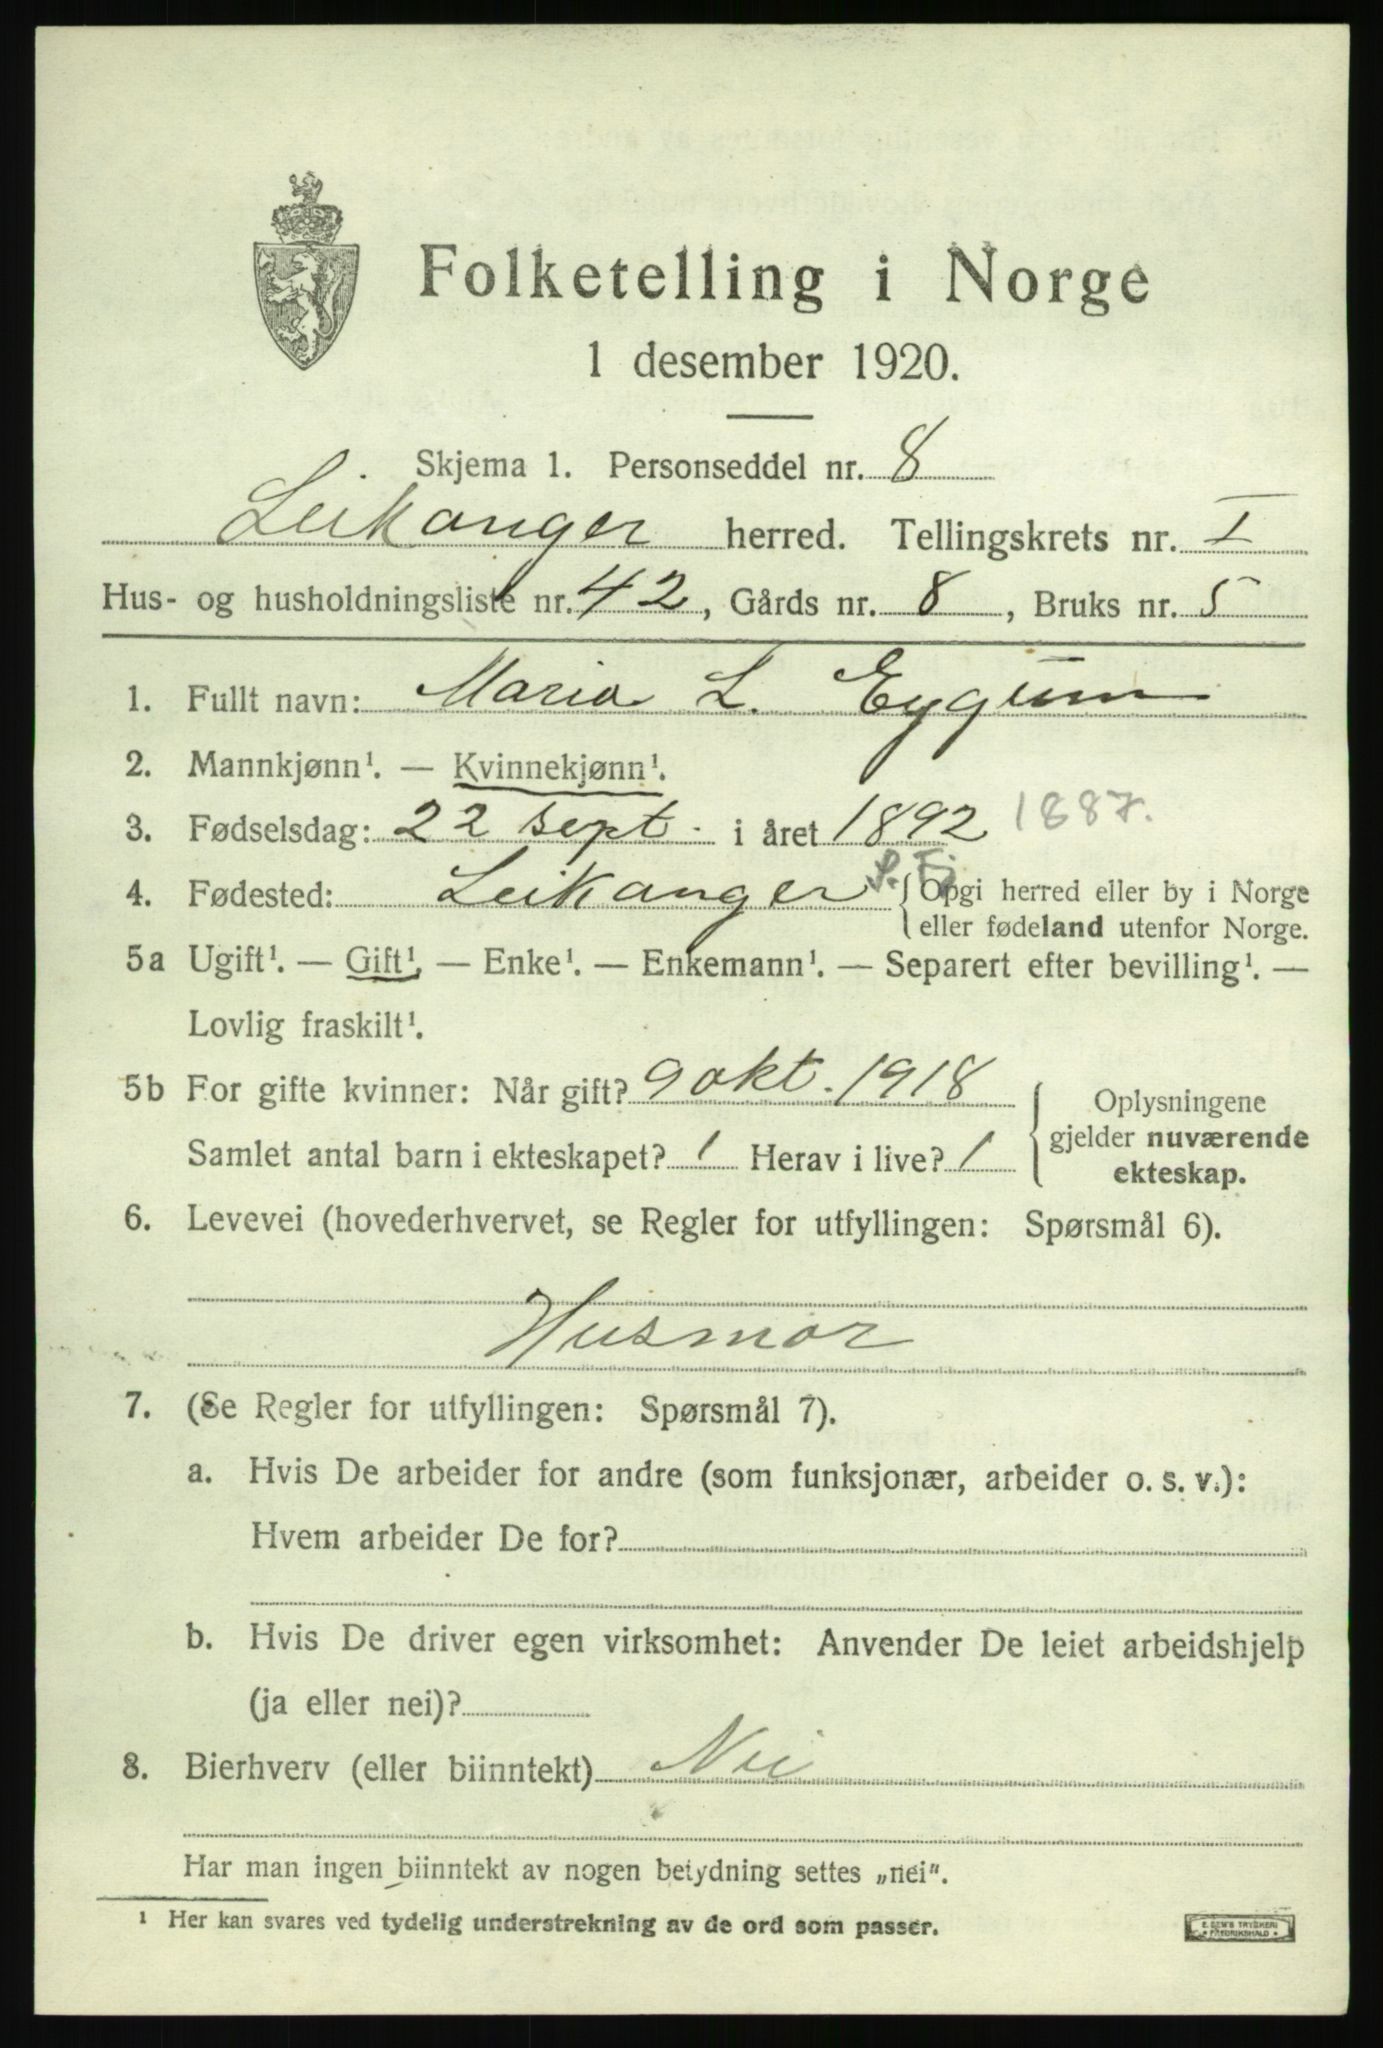 Folketelling i Norge
1 desember 1920.
Skjema 1. Personseddel nr. 8
Leikanger herred. Tellingskrets nr. I
Hus- og husholdningsliste nr. 42, Gårds nr. 8, Bruks nr. 5
1. Fullt navn: Maria L. Eggum
2. Mannkjønn¹. — Kvinnekjønn¹.
3. Fødselsdag: 22 sept. i året 1892 1887.
4. Fødested: Leikanger S. Fj {Opgi herred eller by i Norge
eller fødeland utenfor Norge.
5a Ugift¹. — Gift¹, — Enke¹. — Enkemann¹. — Separert efter bevilling¹. —
Lovlig fraskilt¹.
5b For gifte kvinner: Når gift? 9 okt. 1918
Samlet antal barn i ekteskapet? 1 Herav i live? 1
Oplysningene
gjelder nuværende
ekteskap.
6. Levevei (hovederhvervet, se Regler for utfyllingen: Spørsmål 6).
Husmor
7. (Se Regler for utfyllingen: Spørsmål 7).
a. Hvis De arbeider for andre (som funksjonær, arbeider o. s. v.):
Hvem arbeider De for?
b. Hvis De driver egen virksomhet: Anvender De leiet arbeidshjelp
(ja eller nei)?
8. Bierhverv (eller biinntekt) Nei
Har man ingen biinntekt av nogen betydning settes „nei“.
¹ Her kan svares ved tydelig understrekning av de ord som passer.
E. SEM'S TRYKKERI
FREDRIKSHALD